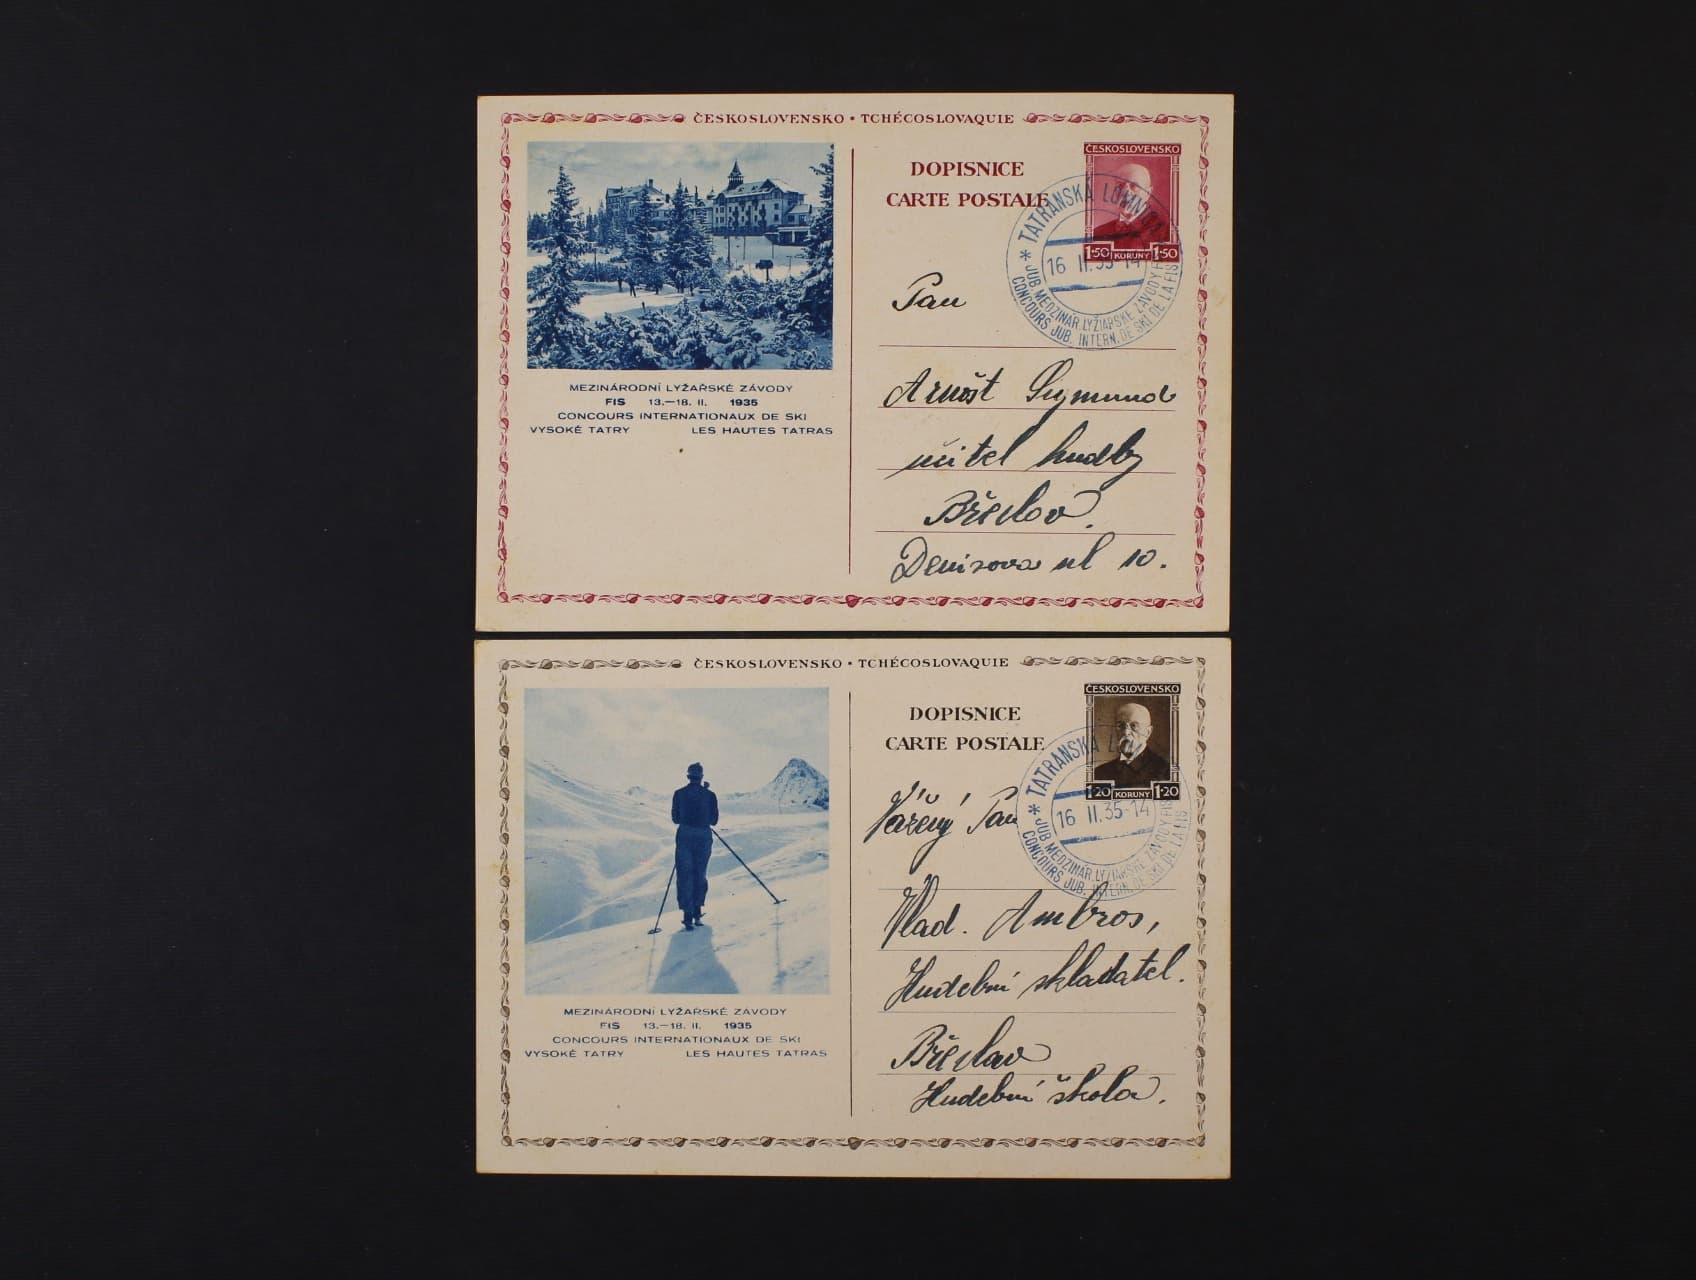 ČESKOSLOVENSKO • TCHÉCOSLOVAQUIE
DOPISNICE
CARTE POSTALE
ČESKOSLOVENSKO
1·50 KORUNY 1·50
* TATRANSKÁ LOMNICA
16 II.35-14
JUB. MEDZINÁR. LYŽIARSKÉ ZÁVODY FIS
CONCOURS JUB. INTERN. DE SKI DE LA FIS
MEZINÁRODNÍ LYŽAŘSKÉ ZÁVODY
FIS 13.–18. II. 1935
CONCOURS INTERNATIONAUX DE SKI
VYSOKÉ TATRY LES HAUTES TATRAS
Pan
Arnošt Sigmund
učitel hudby
Břeclav.
Denisova ul 10.
ČESKOSLOVENSKO • TCHÉCOSLOVAQUIE
DOPISNICE
CARTE POSTALE
ČESKOSLOVENSKO
1·20 KORUNY 1·20
* TATRANSKÁ LOM
16 II.35-14
JUB. MEDZINÁR. LYŽIARSKÉ ZÁVODY FIS
CONCOURS JUB. INTERN. DE SKI DE LA FIS
MEZINÁRODNÍ LYŽAŘSKÉ ZÁVODY
FIS 13.–18. II. 1935
CONCOURS INTERNATIONAUX DE SKI
VYSOKÉ TATRY LES HAUTES TATRAS
Vážený Pan
Vlad. Ambros,
Hudební skladatel.
Břeclav
Hudební škola.